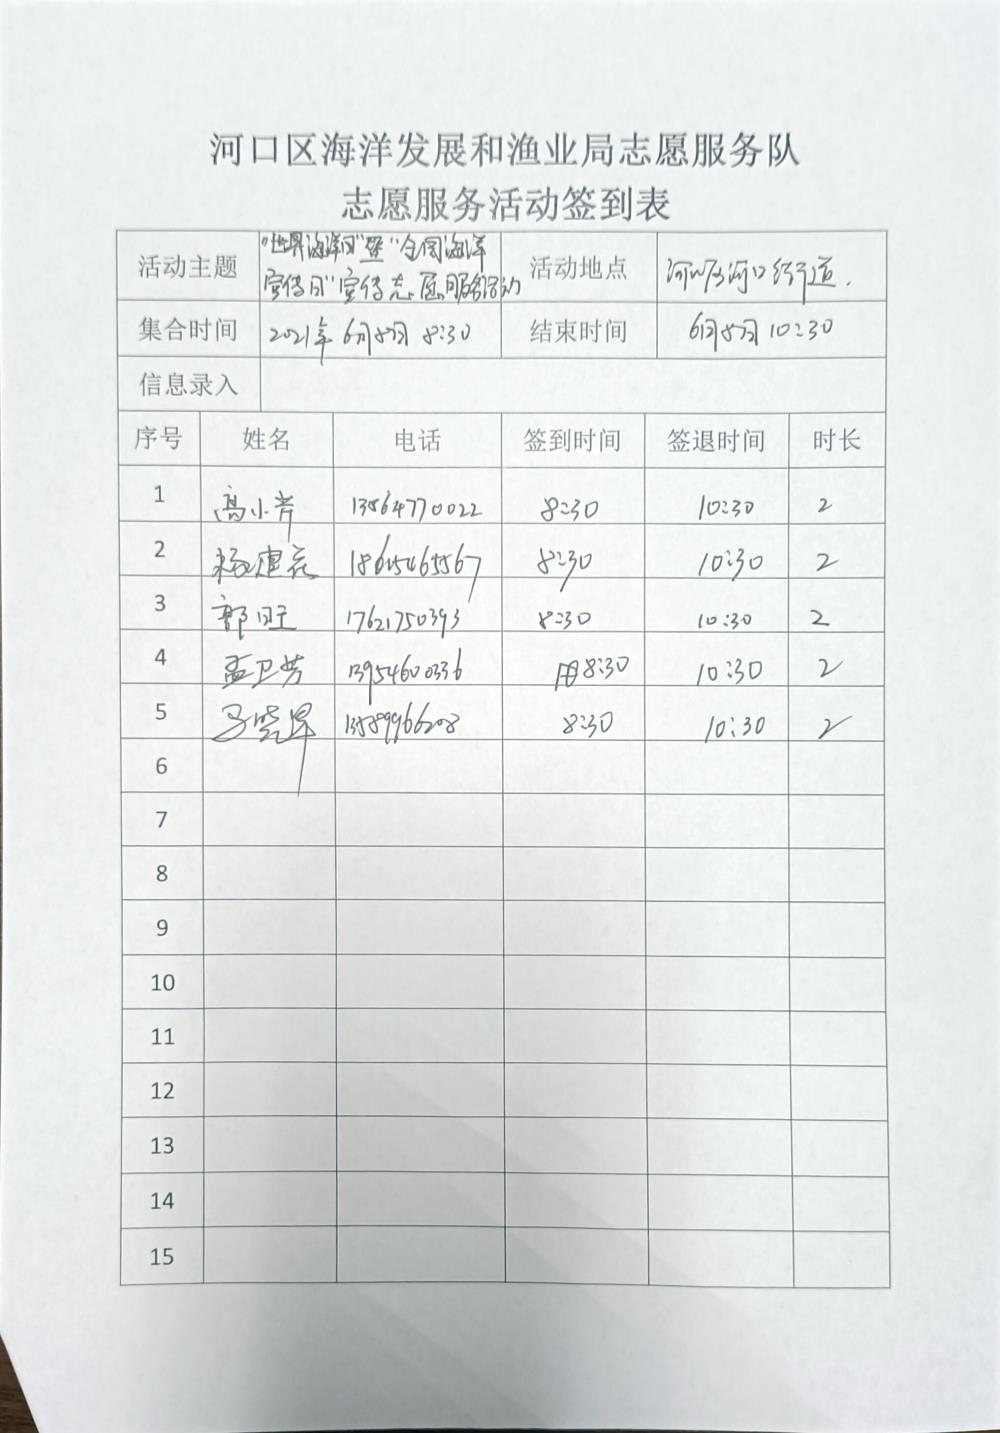 河口区海洋发展和渔业局志愿服务队
志愿服务活动签到表
活动主题 "世界海洋日"暨"全国海洋宣传日"宣传志愿服务活动 活动地点 河口区河口街道.
集合时间 2021年6月8日 8:30 结束时间 6月8日 10:30
信息录入
序号 姓名 电话 签到时间 签退时间 时长
1 高小芹 13564770022 8:30 10:30 2
2 杨建 18615465567 8:30 10:30 2
3 郭旺 17621750393 8:30 10:30 2
4 孟卫芳 13954600336 8:30 10:30 2
5 13589966208 8:30 10:30 2
6
7
8
9
10
11
12
13
14
15